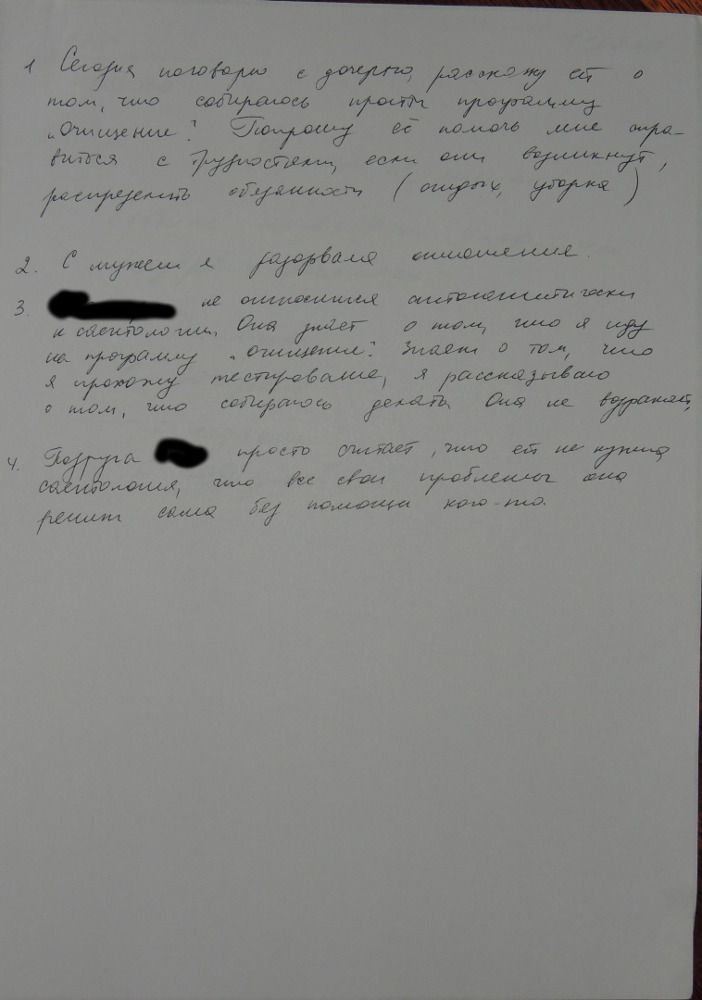 1 Сегодня поговорю с дочерью, расскажу ей о
том, что собираюсь пройти программу
„Очищение". Попрошу её помочь мне спра-
виться с трудностями, если они возникнут,
распределить обязанности (отдых, уборка)
2. С мужем я разорвала отношения.
3. не относится антогонистически
к саентологии. Она знает о том, что я иду
на программу „Очищение". Знает о том, что
я прохожу тестирование, я рассказываю
о том, что собираюсь делать. Она не возражает,
4. Подруга просто считает, что ей не нужна
саентология, что все свои проблемы она
решит сама без помощи кого-то.